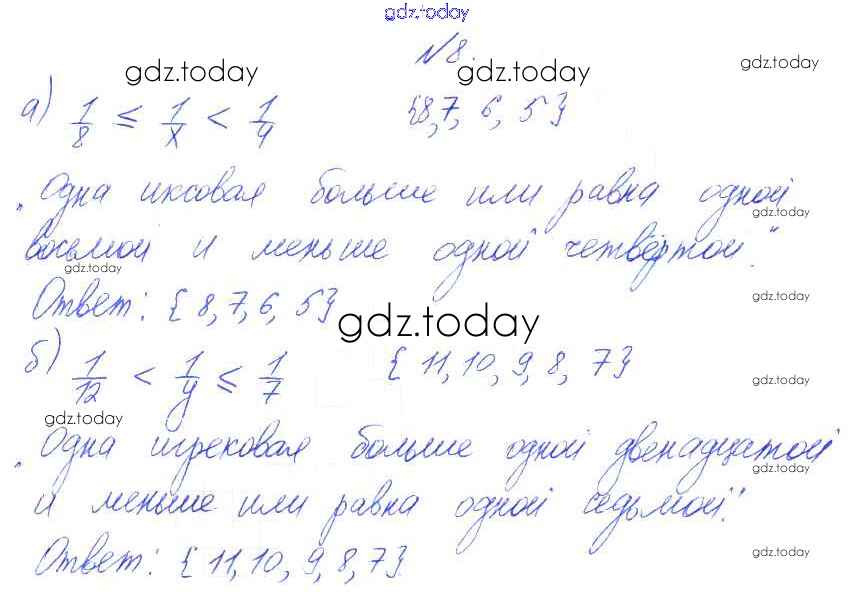 gdz.today
№8.
gdz.today gdz.today gdz.today
а) 1/8 ≤ 1/x < 1/4 {8, 7, 6, 5}
„Одна иксовая больше или равна одной
gdz.today
восьмой и меньше одной четвёртой."
gdz.today
Ответ: {8, 7, 6, 5}
gdz.today
gdz.today
б) 1/12 < 1/y ≤ 1/7 {11, 10, 9, 8, 7}
gdz.today
gdz.today
„Одна игрековая больше одной двенадцатой
gdz.today
и меньше или равна одной седьмой."
Ответ: {11, 10, 9, 8, 7}
gdz.today